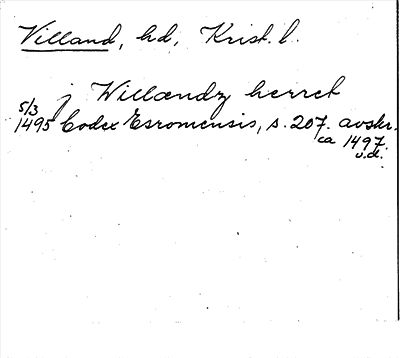 Villand, hd, Krist. l.
j Willændz herret
5/3
1495 Codex Esromensis, s. 207. avskr.
ca 1497.
u.d.